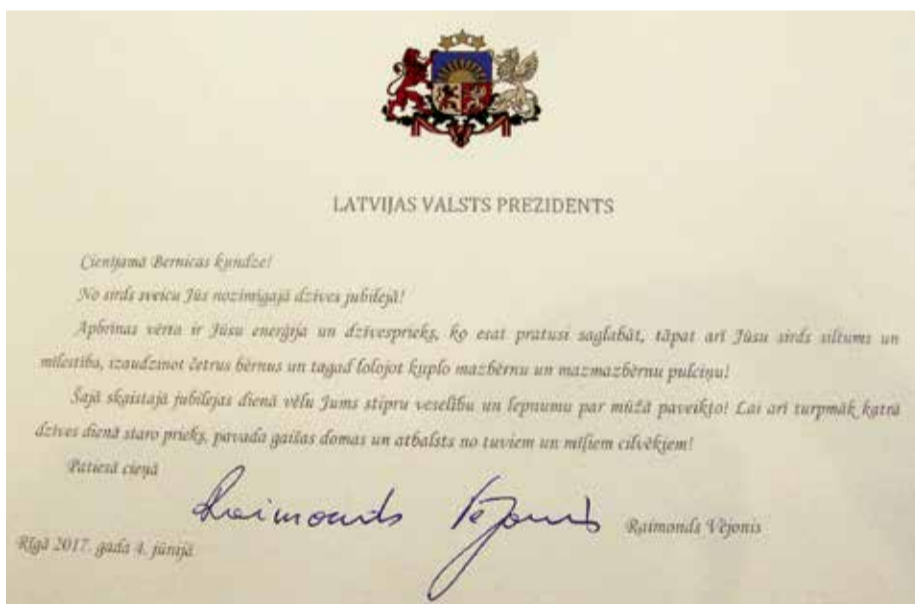 LATVIJAS VALSTS PREZIDENTS
Cienījamā Bernicas kundze!
No sirds sveicu Jūs nozīmīgajā dzīves jubilejā!
Apbrīnas vērta ir Jūsu enerģija un dzīvesprieks, ko esat pratusi saglabāt, tāpat arī Jūsu sirds siltums un
mīlestība, izaudzinot četrus bērnus un tagad lolojot kuplo mazbērnu un mazmazbērnu pulciņu!
Šajā skaistajā jubilejas dienā vēlu Jums stipru veselību un lepnumu par mūžā paveikto! Lai arī turpmāk katrā
dzīves dienā staro prieks, pavada gaišas domas un atbalsts no tuviem un mīļiem cilvēkiem!
Patiesā cieņā
Raimonds Vējonis
Raimonds Vējonis
Rīgā 2017. gada 4. jūnijā